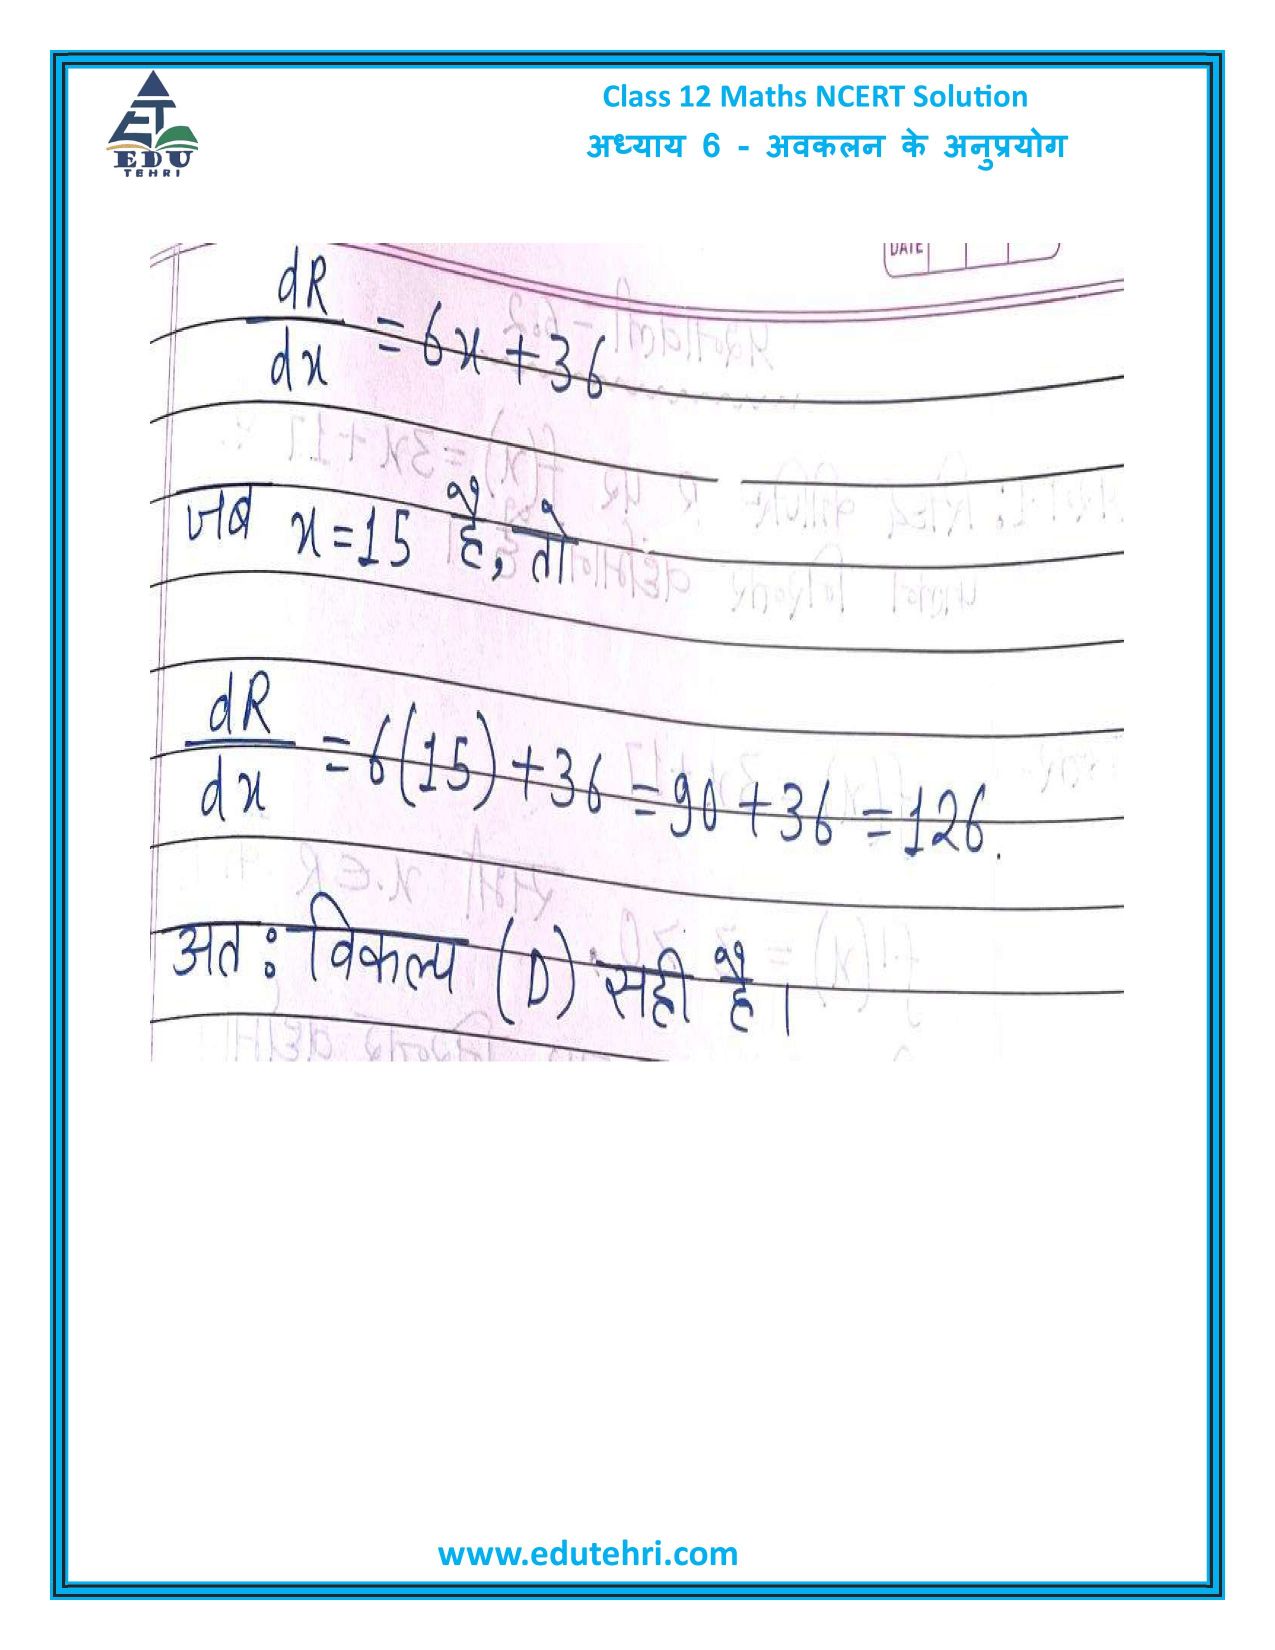 Class 12 Maths NCERT Solution
अध्याय 6 - अवकलन के अनुप्रयोग
EDU
TEHRI
DATE
dR/dx = 6x + 36
जब x = 15 है, तो
dR/dx = 6(15) + 36 = 90 + 36 = 126.
अतः विकल्प (D) सही है।
www.edutehri.com